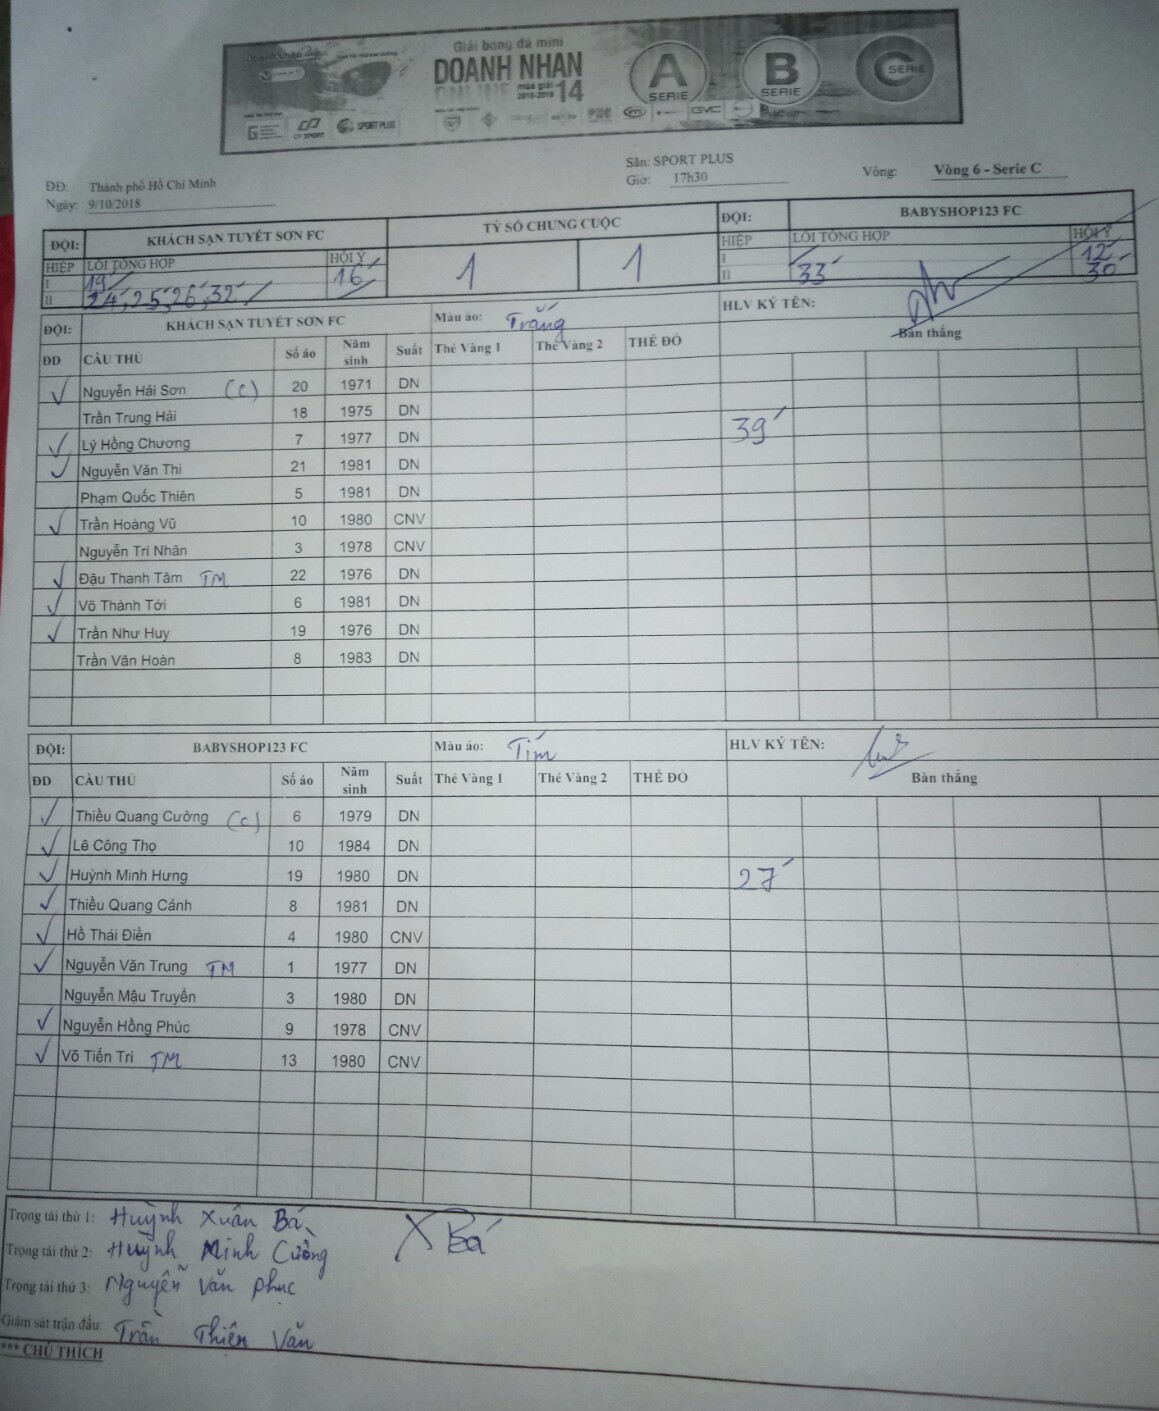 Giải bóng đá mini
DOANH NHAN
ONLINE mùa giải 2018-2019 14
A SERIE
B SERIE
C SERIE
SPORT PLUS
ĐĐ: Thành phố Hồ Chí Minh
Ngày: 9/10/2018
Sân: SPORT PLUS
Giờ: 17h30
Vòng: Vòng 6 - Serie C
ĐỘI: KHÁCH SẠN TUYẾT SƠN FC TỶ SỐ CHUNG CUỘC ĐỘI: BABYSHOP123 FC
HIỆP LỖI TỔNG HỢP HỘI Ý 1 1 HIỆP LỖI TỔNG HỢP HỘI Ý
I 19' 16' I 12'
II 24', 25', 26', 32' II 33' 30'
ĐỘI: KHÁCH SẠN TUYẾT SƠN FC Màu áo: Trắng HLV KÝ TÊN:
ĐD CẦU THỦ Số áo Năm sinh Suất Thẻ Vàng 1 Thẻ Vàng 2 THẺ ĐỎ Bàn thắng
✓ Nguyễn Hải Sơn (C) 20 1971 DN
Trần Trung Hải 18 1975 DN
✓ Lý Hồng Chương 7 1977 DN 39'
✓ Nguyễn Văn Thi 21 1981 DN
Phạm Quốc Thiên 5 1981 DN
✓ Trần Hoàng Vũ 10 1980 CNV
Nguyễn Trí Nhân 3 1978 CNV
✓ Đậu Thanh Tâm TM 22 1976 DN
✓ Võ Thành Tới 6 1981 DN
✓ Trần Như Huy 19 1976 DN
Trần Văn Hoàn 8 1983 DN
ĐỘI: BABYSHOP123 FC Màu áo: Tím HLV KÝ TÊN:
ĐD CẦU THỦ Số áo Năm sinh Suất Thẻ Vàng 1 Thẻ Vàng 2 THẺ ĐỎ Bàn thắng
✓ Thiều Quang Cường (C) 6 1979 DN
✓ Lê Công Thọ 10 1984 DN
✓ Huỳnh Minh Hưng 19 1980 DN 27'
✓ Thiều Quang Cảnh 8 1981 DN
✓ Hồ Thái Điền 4 1980 CNV
✓ Nguyễn Văn Trung TM 1 1977 DN
Nguyễn Mậu Truyền 3 1980 DN
✓ Nguyễn Hồng Phúc 9 1978 CNV
✓ Võ Tiến Trí TM 13 1980 CNV
Trọng tài thứ 1: Huỳnh Xuân Bá X Bá
Trọng tài thứ 2: Huỳnh Minh Cường
Trọng tài thứ 3: Nguyễn Văn Phục
Giám sát trận đấu: Trần Thiện Văn
*** CHÚ THÍCH